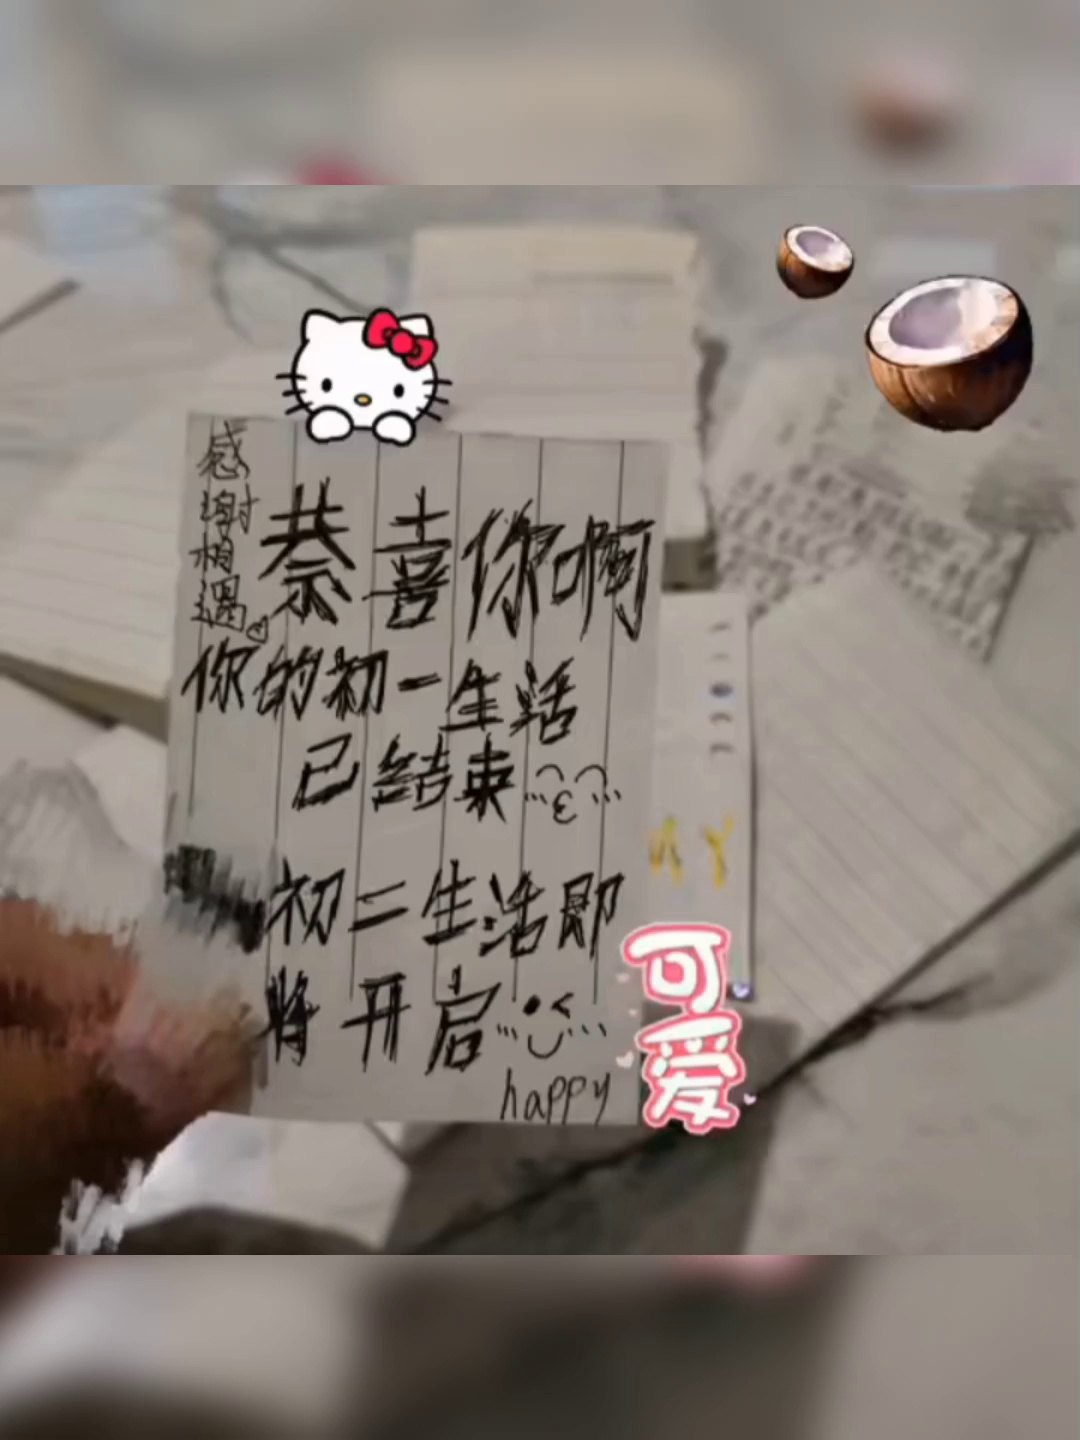 感谢相遇
恭喜你啊
你的初一生活
已结束
初二生活即
将开启
happy
可爱